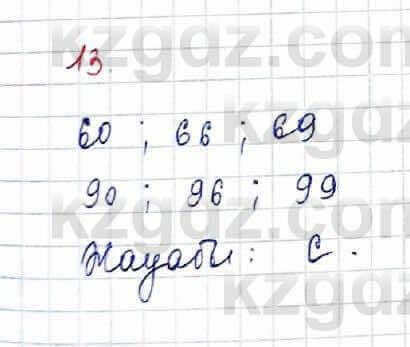 13.
60 ; 66 ; 69
90 ; 96 ; 99
Жауабы: C.
kzgdz.com